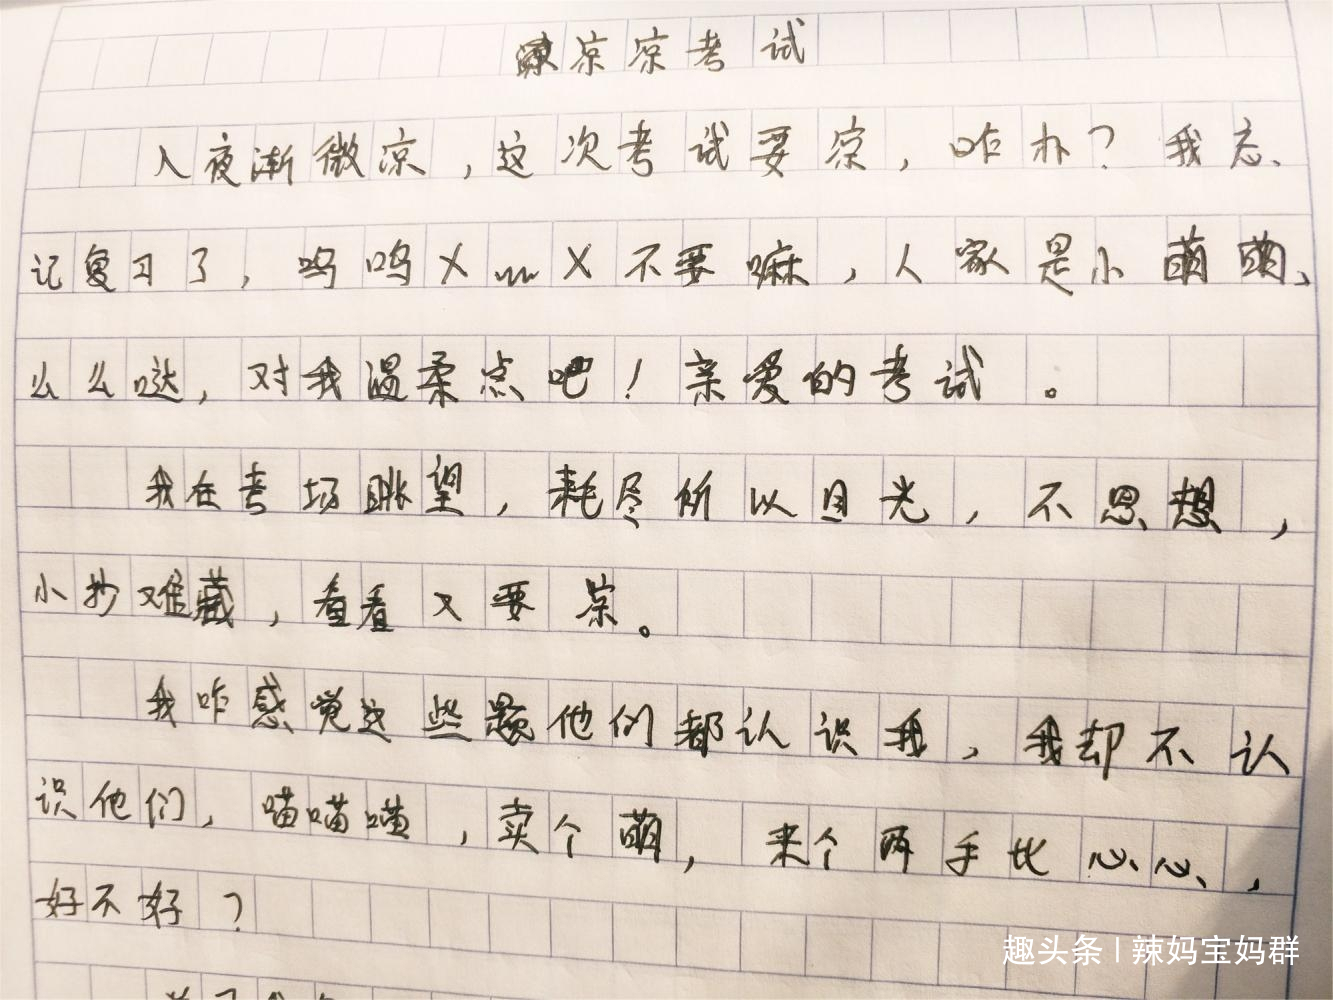 凉凉考试
入夜渐微凉，这次考试要凉，咋办？我忘
记复习了，呜呜X﹏X不要嘛，人家是小萌萌、
么么哒，对我温柔点吧！亲爱的考试。
我在考场眺望，耗尽所以目光，不思想，
小抄难藏，看看又要凉。
我咋感觉这些题他们都认识我，我却不认
识他们，喵喵喵，卖个萌，来个两手比心心，
好不好？
趣头条 | 辣妈宝妈群